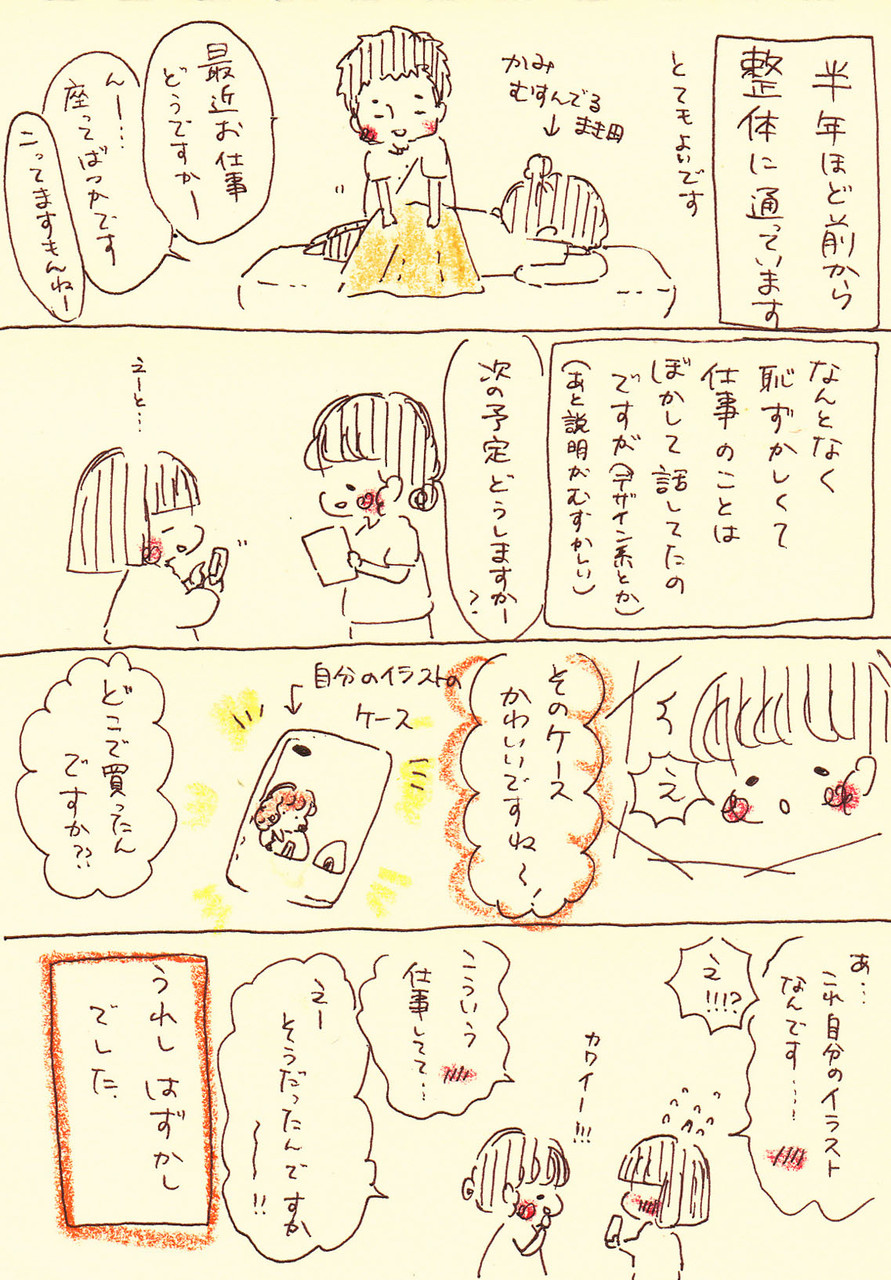 半年ほど前から
整体に通っています
とてもよいです
かみ
むすんでる
まき田
最近お仕事
どうですかー
んー…
座ってばっかです
こってますもんねー
なんとなく
恥ずかしくて
仕事のことは
ぼかして話してたの
ですが(デザイン系とか)
(あと説明がむずかしい)
次の予定どうしますかー
?
えーと…
え
そのケース
かわいいですね〜!
自分のイラストの
ケース
どこで買ったん
ですか??
あ…
これ自分のイラスト
なんです……
え
!!!?
カワイー!!!
こういう
仕事してて…
えー
そうだったんですか
〜〜!!
うれしはずかし
でした.